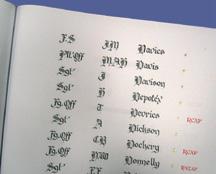 F.S J.M Davies
Plt/Off M.A.H Davis
Sgt' J Davison
Sgt' H
Fg.Off T Devries RCAF
Sgt' A Dickson
Fg.Off C.B Dockery RCAF
Fg.Off H.W Donnelly RNZAF
Sgt'